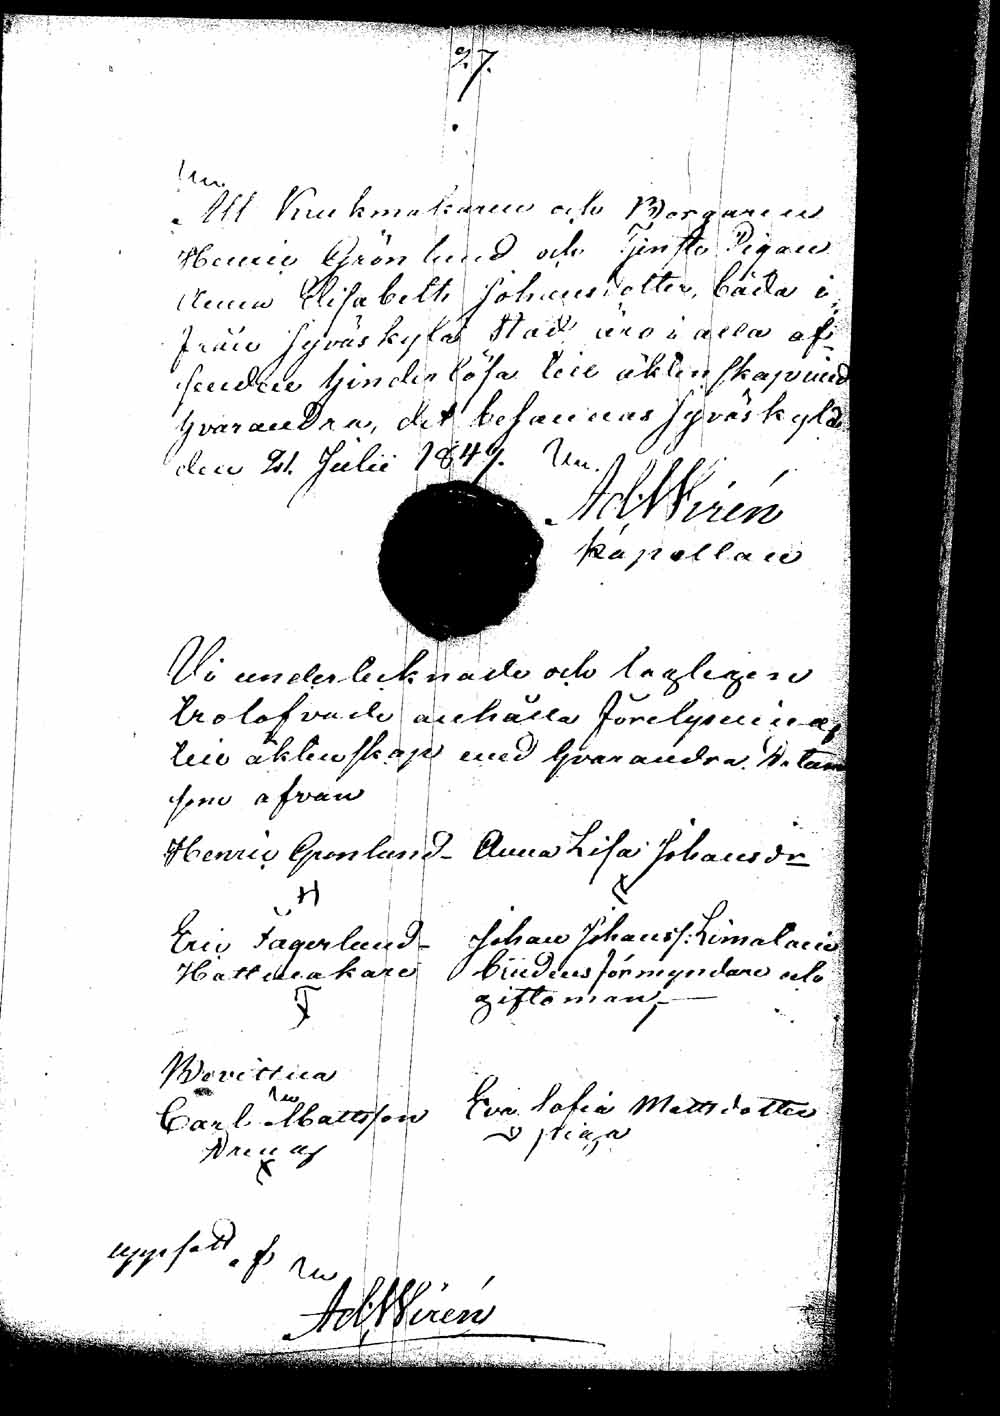 27.
Att Krukmakaren och Borgaren
Henric Grönlund och Tjenste Pigan
Anna Elisabeth Johansdotter, båda i
från Jyväskylä Stad äro i alla af-
seenden hinderlösa till äktenskap med
hvarandra, det besannas Jyväskylä
den 21. Julii 1849.
Ad. Wirén
Kapellan
Vi undertecknade och lagligen
trolofvade anhålla förelysning
till äktenskap med hvarandra. Datum
som ofvan
Henric Grönlund - Anna Lisa Johansdr
Eric Fagerlund - Johan Johanss: Limalain
Hattmakare brudens förmyndare och
giftoman,
Bevittna
Carl Mattsson Eva Sofia Mattsdotter
Dreng piga
uppsatt af
Ad. Wirén